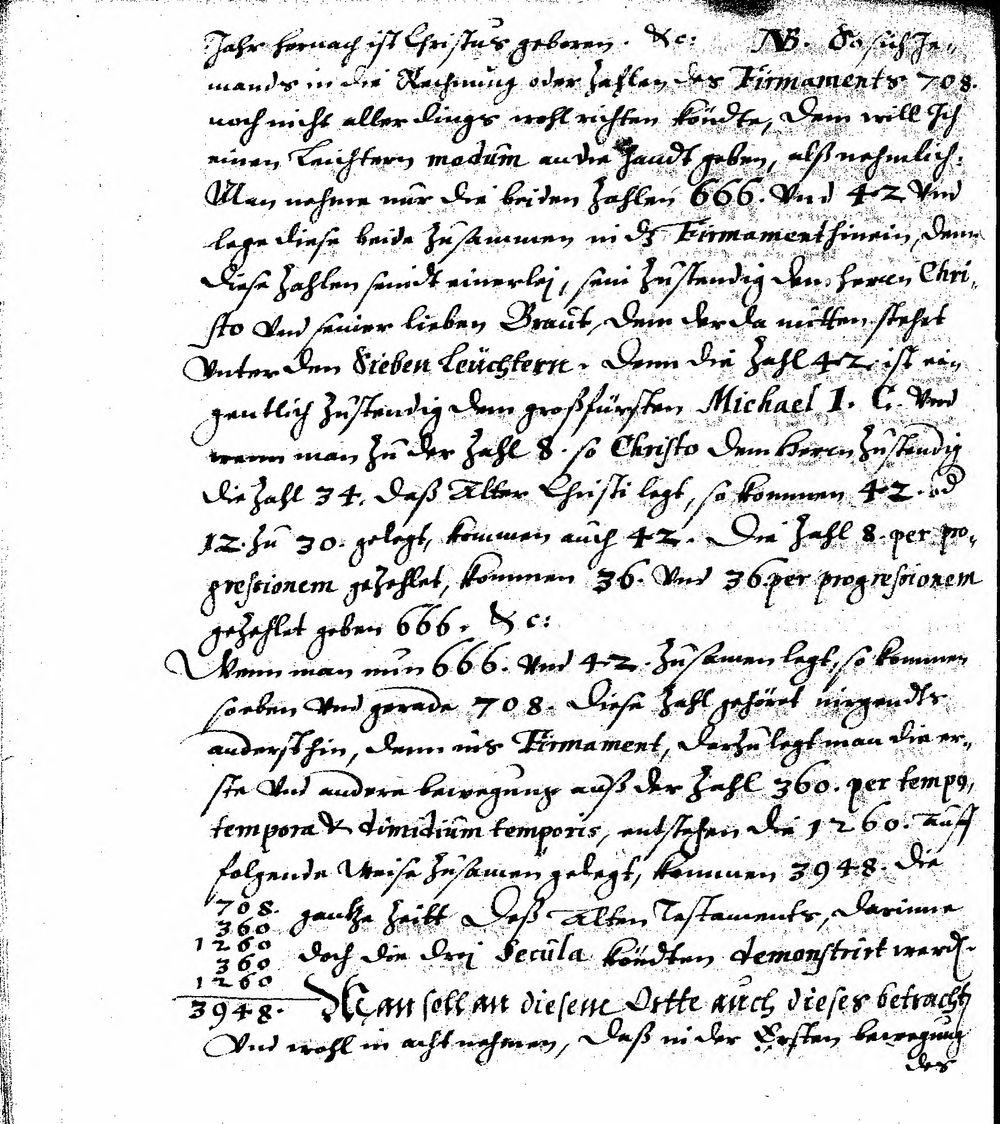 Jahr hernach ist Christus geboren. &c: NB. So sich Je,
mands in die Rechnung oder Zahlen des Firmaments 708.
noch nicht aller dings wohl richten köndte, dem will Ich
einen Leichtern modum an die Handt geben, alß nehmlich:
Man nehme nur die beiden Zahlen 666. Vnd 42 Vnd
lege diese beide Zusammen in dz Firmament hinein, denn
diese Zahlen seindt einerlej, sein Zustendig dem Herrn Chri,
sto Vnd seiner lieben Braut, dem der da mitten stehet
Vnter den Sieben Leüchtern. Denn die Zahl 42. ist ein
gentlich Zustendig dem großfürsten Michael I. C. Vnd
wenn man Zu der Zahl 8. so Christo dem Herrn Zustendig
die Zahl 34. daß Alter Christi legt, so kommen 42. od
12. Zu 30. gelegt, kommen auch 42. Die Zahl 8. per pro,
gressionem gezehlet, kommen 36. Vnd 36. per progressionem
gezehlet geben 666. &c:
Wenn man nun 666. Vnd 42. Zusamen legt, so kommen
so eben Vnd gerade 708. Diese Zahl gehöret nirgendts
anderst hin, denn ins Firmament, darzu legt man die er,
ste Vnd andere bewegung auß der Zahl 360. per tempus,
tempora & dimidium temporis, entstehen die 1260. Auff
folgende Weise Zusamen gelegt, kommen 3948. die
708. gantze Zeitt deß Alten Testaments, darinne
360
1260 doch die drej Secula köndten demonstrirt werdē.
360
1260
3948. Man soll an diesem Ortte auch dieses betrachtē
Vnd wohl in acht nehmen, daß in der Ersten bewegung
des